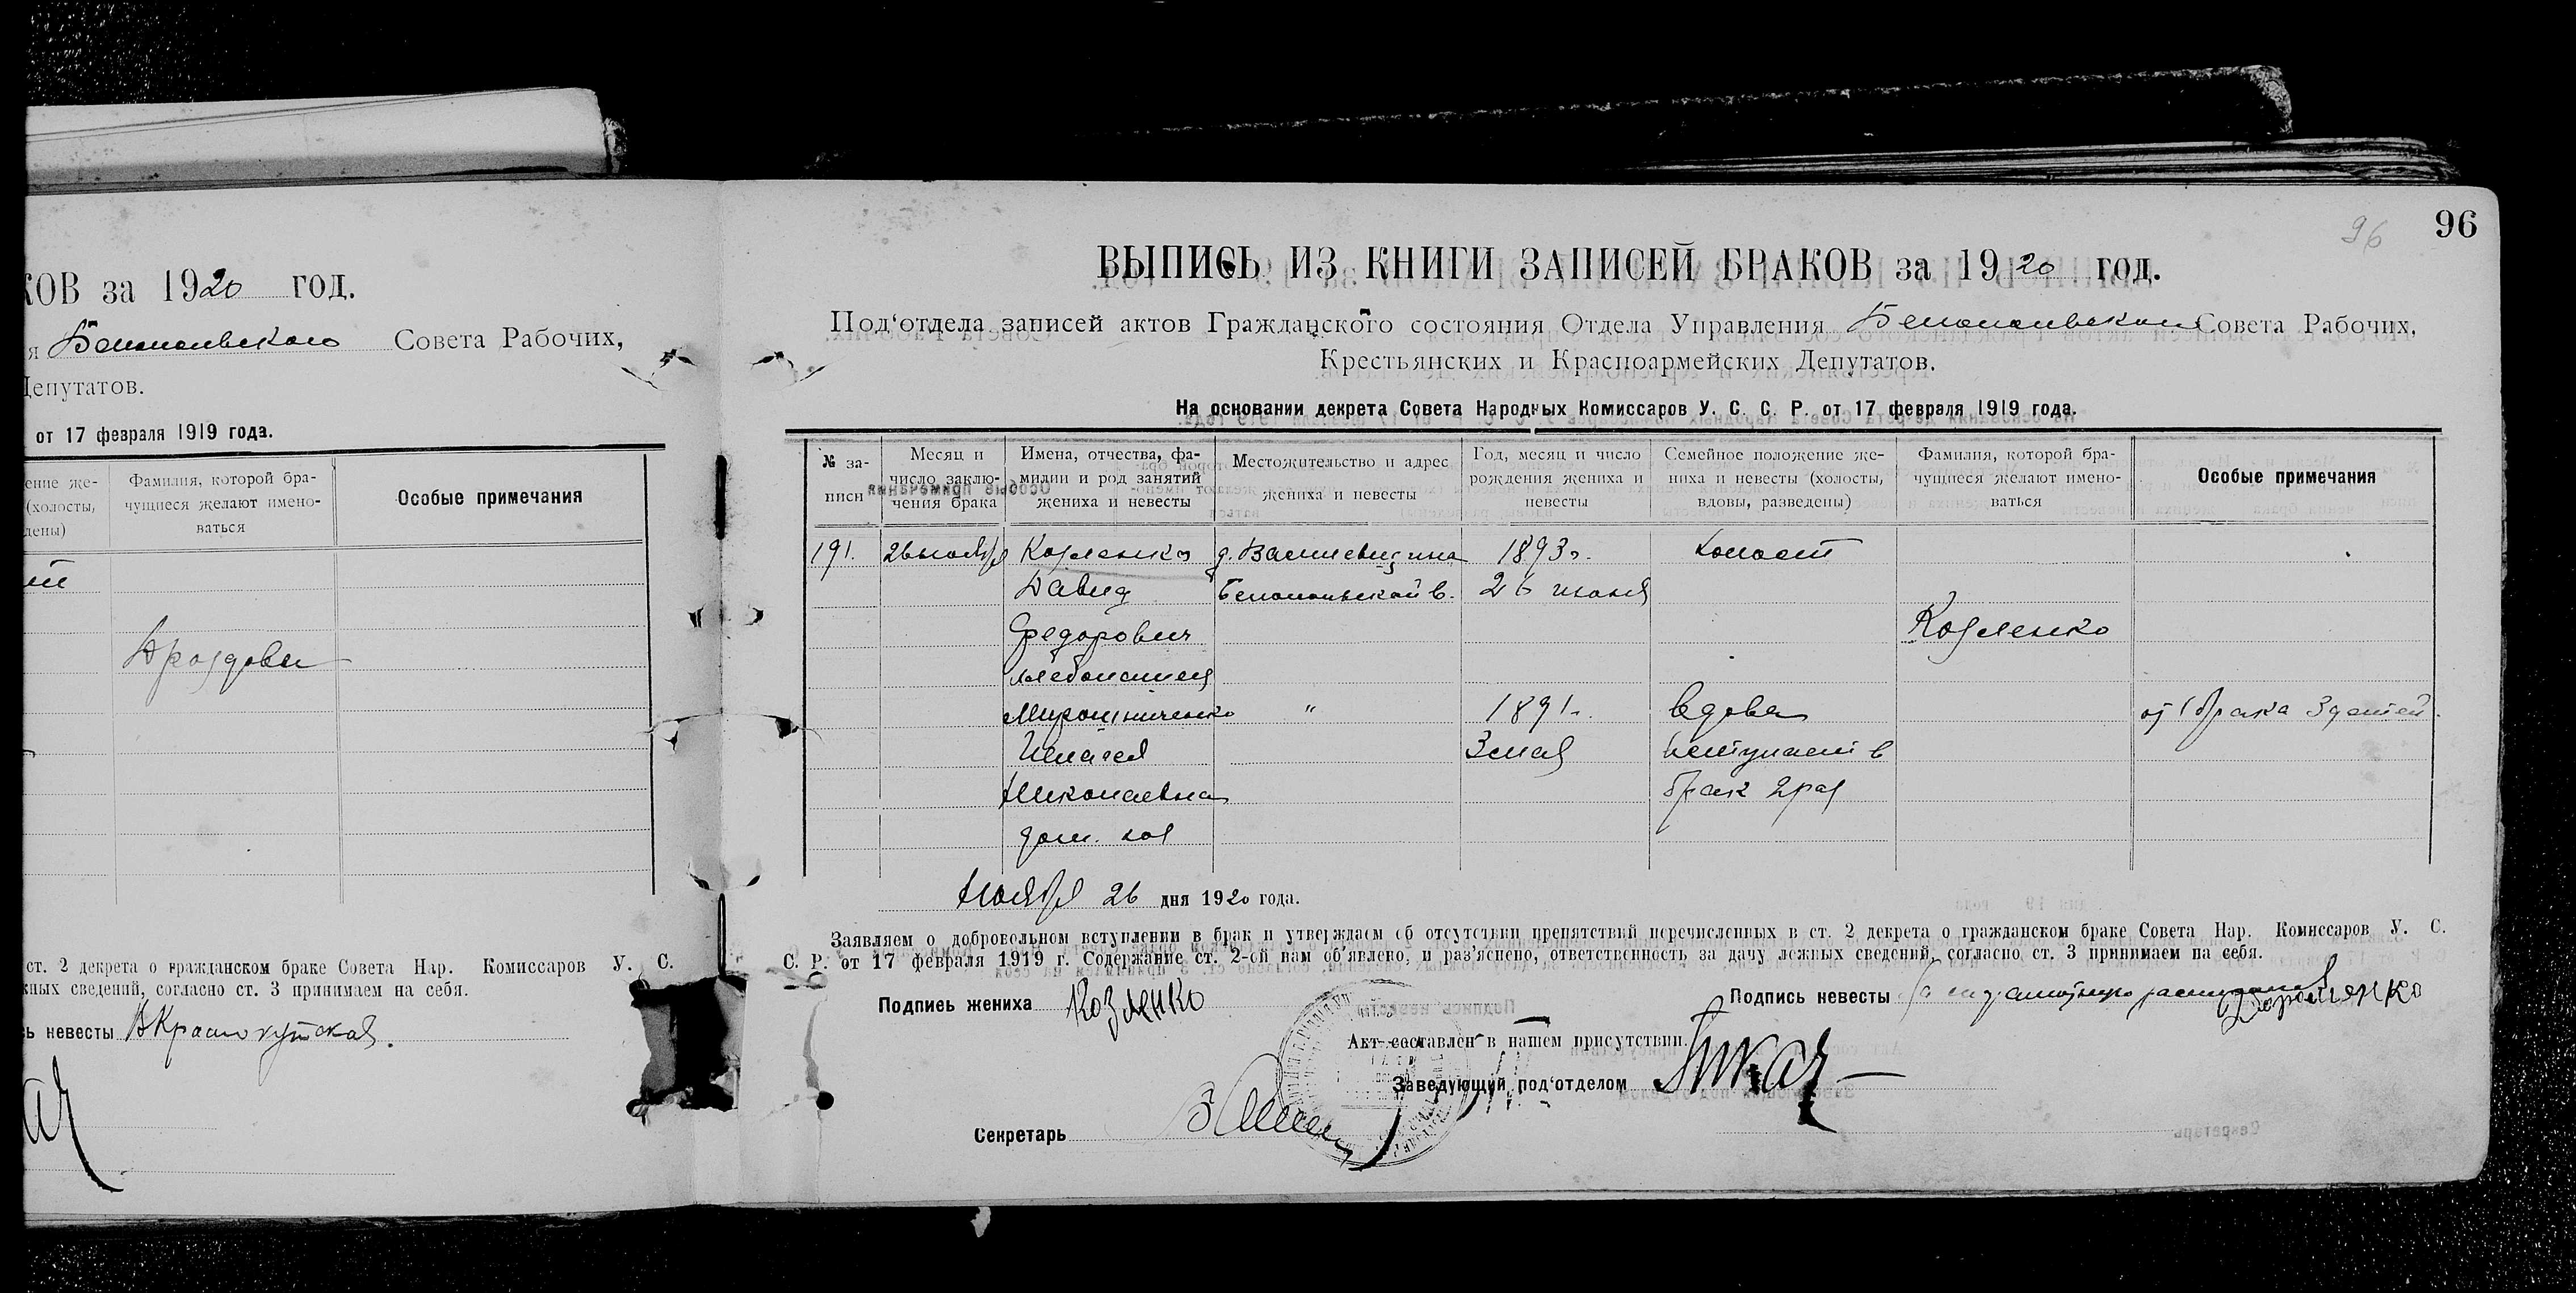 КОВ за 1920 год.
я Белопольского Совета Рабочих,
Депутатов.
от 17 февраля 1919 года.
ение же-
(холосты,
дены)
Фамилия, которой бра-
чущиеся желают имено-
ваться
Особые примечания
Дроздовы
ст. 2 декрета о гражданском браке Совета Нар. Комиссаров У. С.
жных сведений, согласно ст. 3 принимаем на себя.
ь невесты
96
96
ВЫПИСЬ ИЗ КНИГИ ЗАПИСЕЙ БРАКОВ за 1920 год.
Под‘отдела записей актов Гражданского состояния Отдела Управления Белопольского Совета Рабочих,
Крестьянских и Красноармейских Депутатов.
На основании декрета Совета Народных Комиссаров У. С. С. Р. от 17 февраля 1919 года.
№ за-
писи
Месяц и
число заклю-
чения брака
Имена, отчества, фа-
милии и род занятий
жениха и невесты
Местожительство и адрес
жениха и невесты
Год, месяц и число
рождения жениха и
невесты
Семейное положение же-
ниха и невесты (холосты,
вдовы, разведены)
Фамилия, которой бра-
чущиеся желают имено-
ваться
Особые примечания
191. 26 ноября Козленко д. 1893 г. холост
Давид Белопольской в. 26 июня
Федорович Козленко
хлебопашец
Мирошниченко " 1891 г. вдова от 1 брака 3 детей
3 мая вступает в
Николаевна брак 2 раз
дом. хоз
Ноября 26 дня 1920 года.
Заявляем о добровольном вступлении в брак и утверждаем об отсутствии препятствий перечисленных в ст. 2 декрета о гражданском браке Совета Нар. Комиссаров У. С.
С. Р. от 17 февраля 1919 г. Содержание ст. 2-ой нам об‘явлено, и раз‘яснено, ответственность за дачу ложных сведений, согласно ст. 3 принимаем на себя.
Подпись жениха Козленко Подпись невесты
Акт составлен в нашем присутствии.
Заведующий под‘отделом Ткач
Секретарь